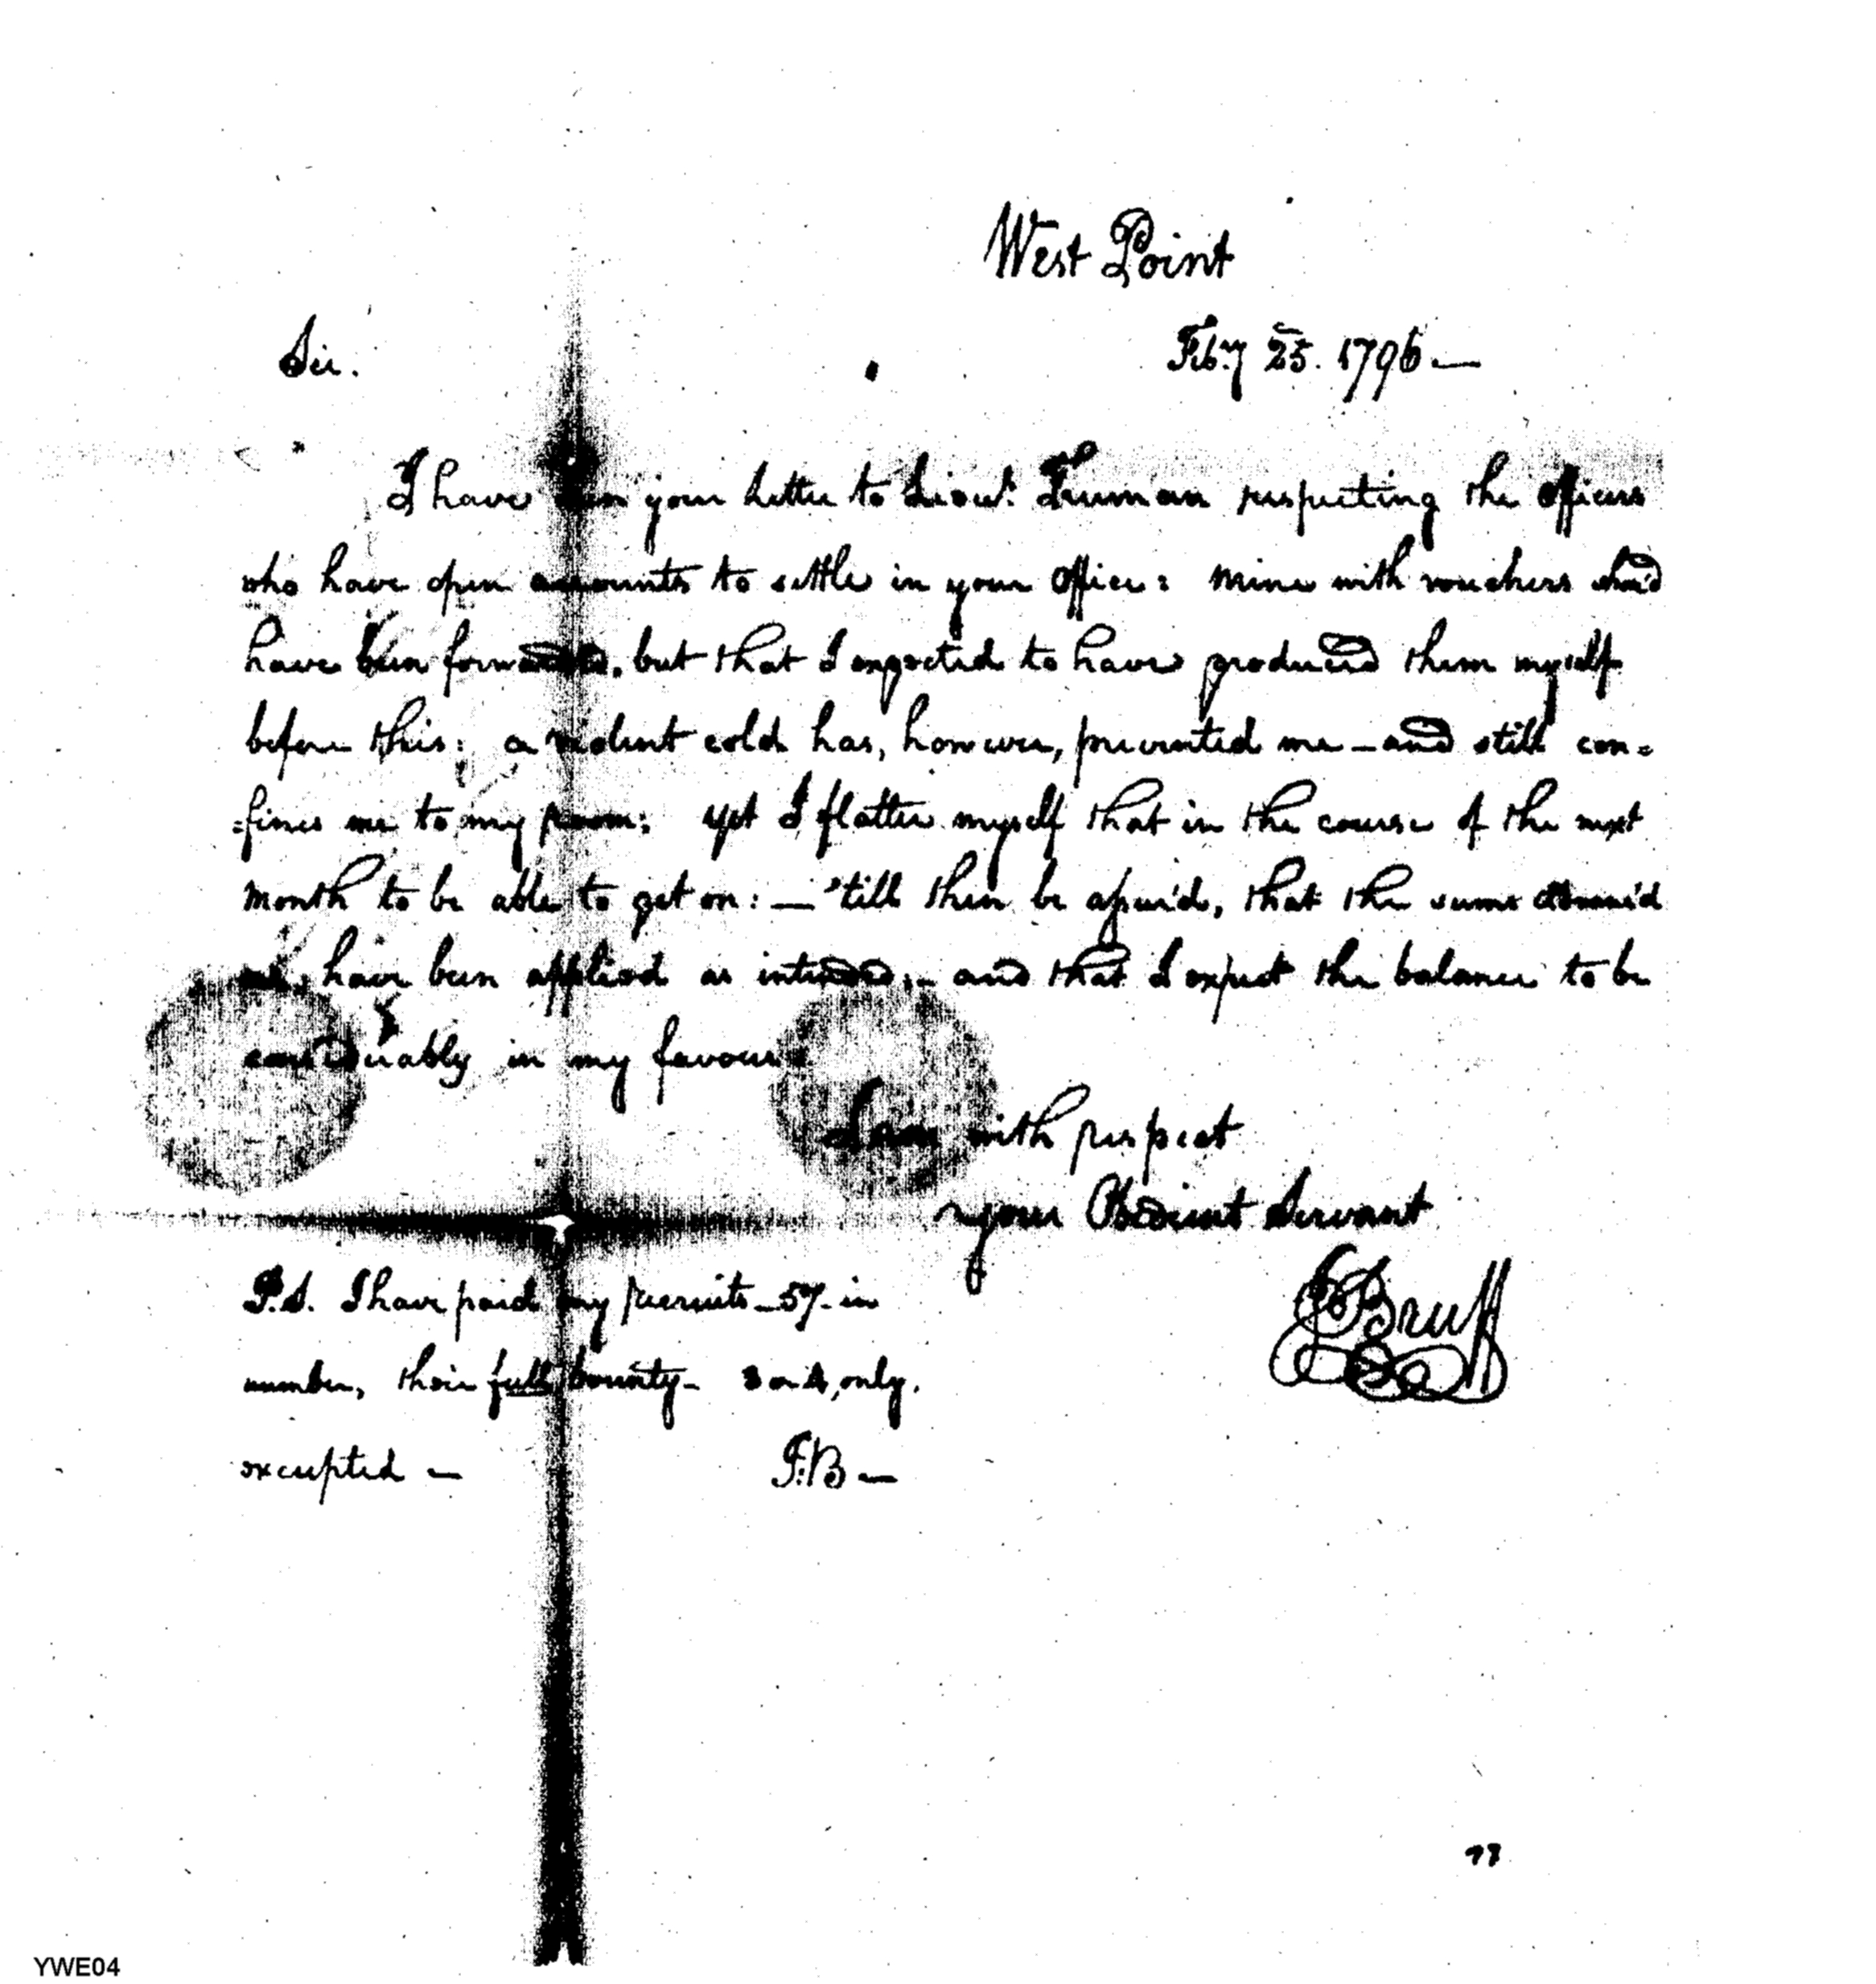 West Point
Feb.y 25. 1796—
Sir.
I have seen your Letter to Lieut. Truman respecting the Officers
who have open accounts to settle in your Office: mine with vouchers shou'd
have been forwarded, but that I expected to have produced them myself
before this: a violent cold has, however, prevented me—and still con=
=fines me to my room: yet I flatter myself that in the course of the next
month to be able to get on:—'till then be assur'd, that the sums
me, have been applied as intended;—and that I expect the balance to be
considerably in my favour
I am with respect
your Obedient Servant
JBruff
P.S. I have paid my recruits—57—in
number, their full bounty—3 or 4, only,
excepted—
J:B—
YWE04